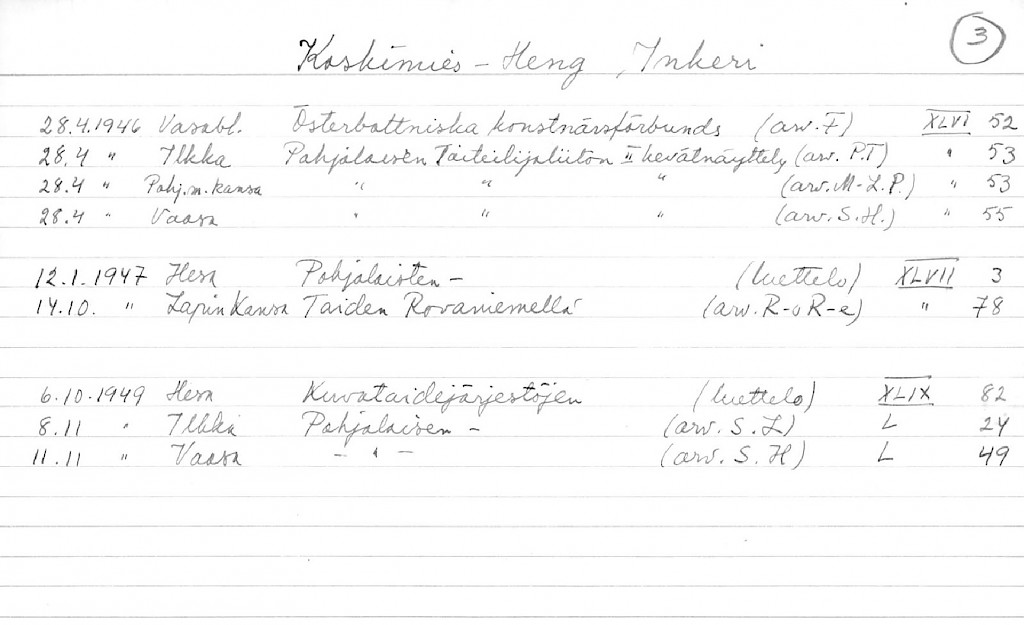 3
Koskimies - Heng, Inkeri
28.4.1946 Vasabl. Österbottniska konstnärsförbunds (arv. F) XLVI 52
28.4 " Ilkka Pohjalaisen Taiteilijaliiton II kevätnäyttely (arv. P.T) " 53
28.4 " Pohj.m.kansa " " " (arv. M-L.P.) " 53
28.4 " Vaasa " " " (arv. S.H.) " 55
12.1.1947 Hesa Pohjalaisten - (luettelo) XLVII 3
14.10. " Lapin Kansa Taiden Rovaniemellä (arv. R-o R-e) " 78
6.10.1949 Hesa Kuvataidejärjestöjen (luettelo) XLIX 82
8.11 " Ilkka Pohjalaisen - (arv. S.L) L 24
11.11 " Vaasa - " - (arv. S.H) L 49